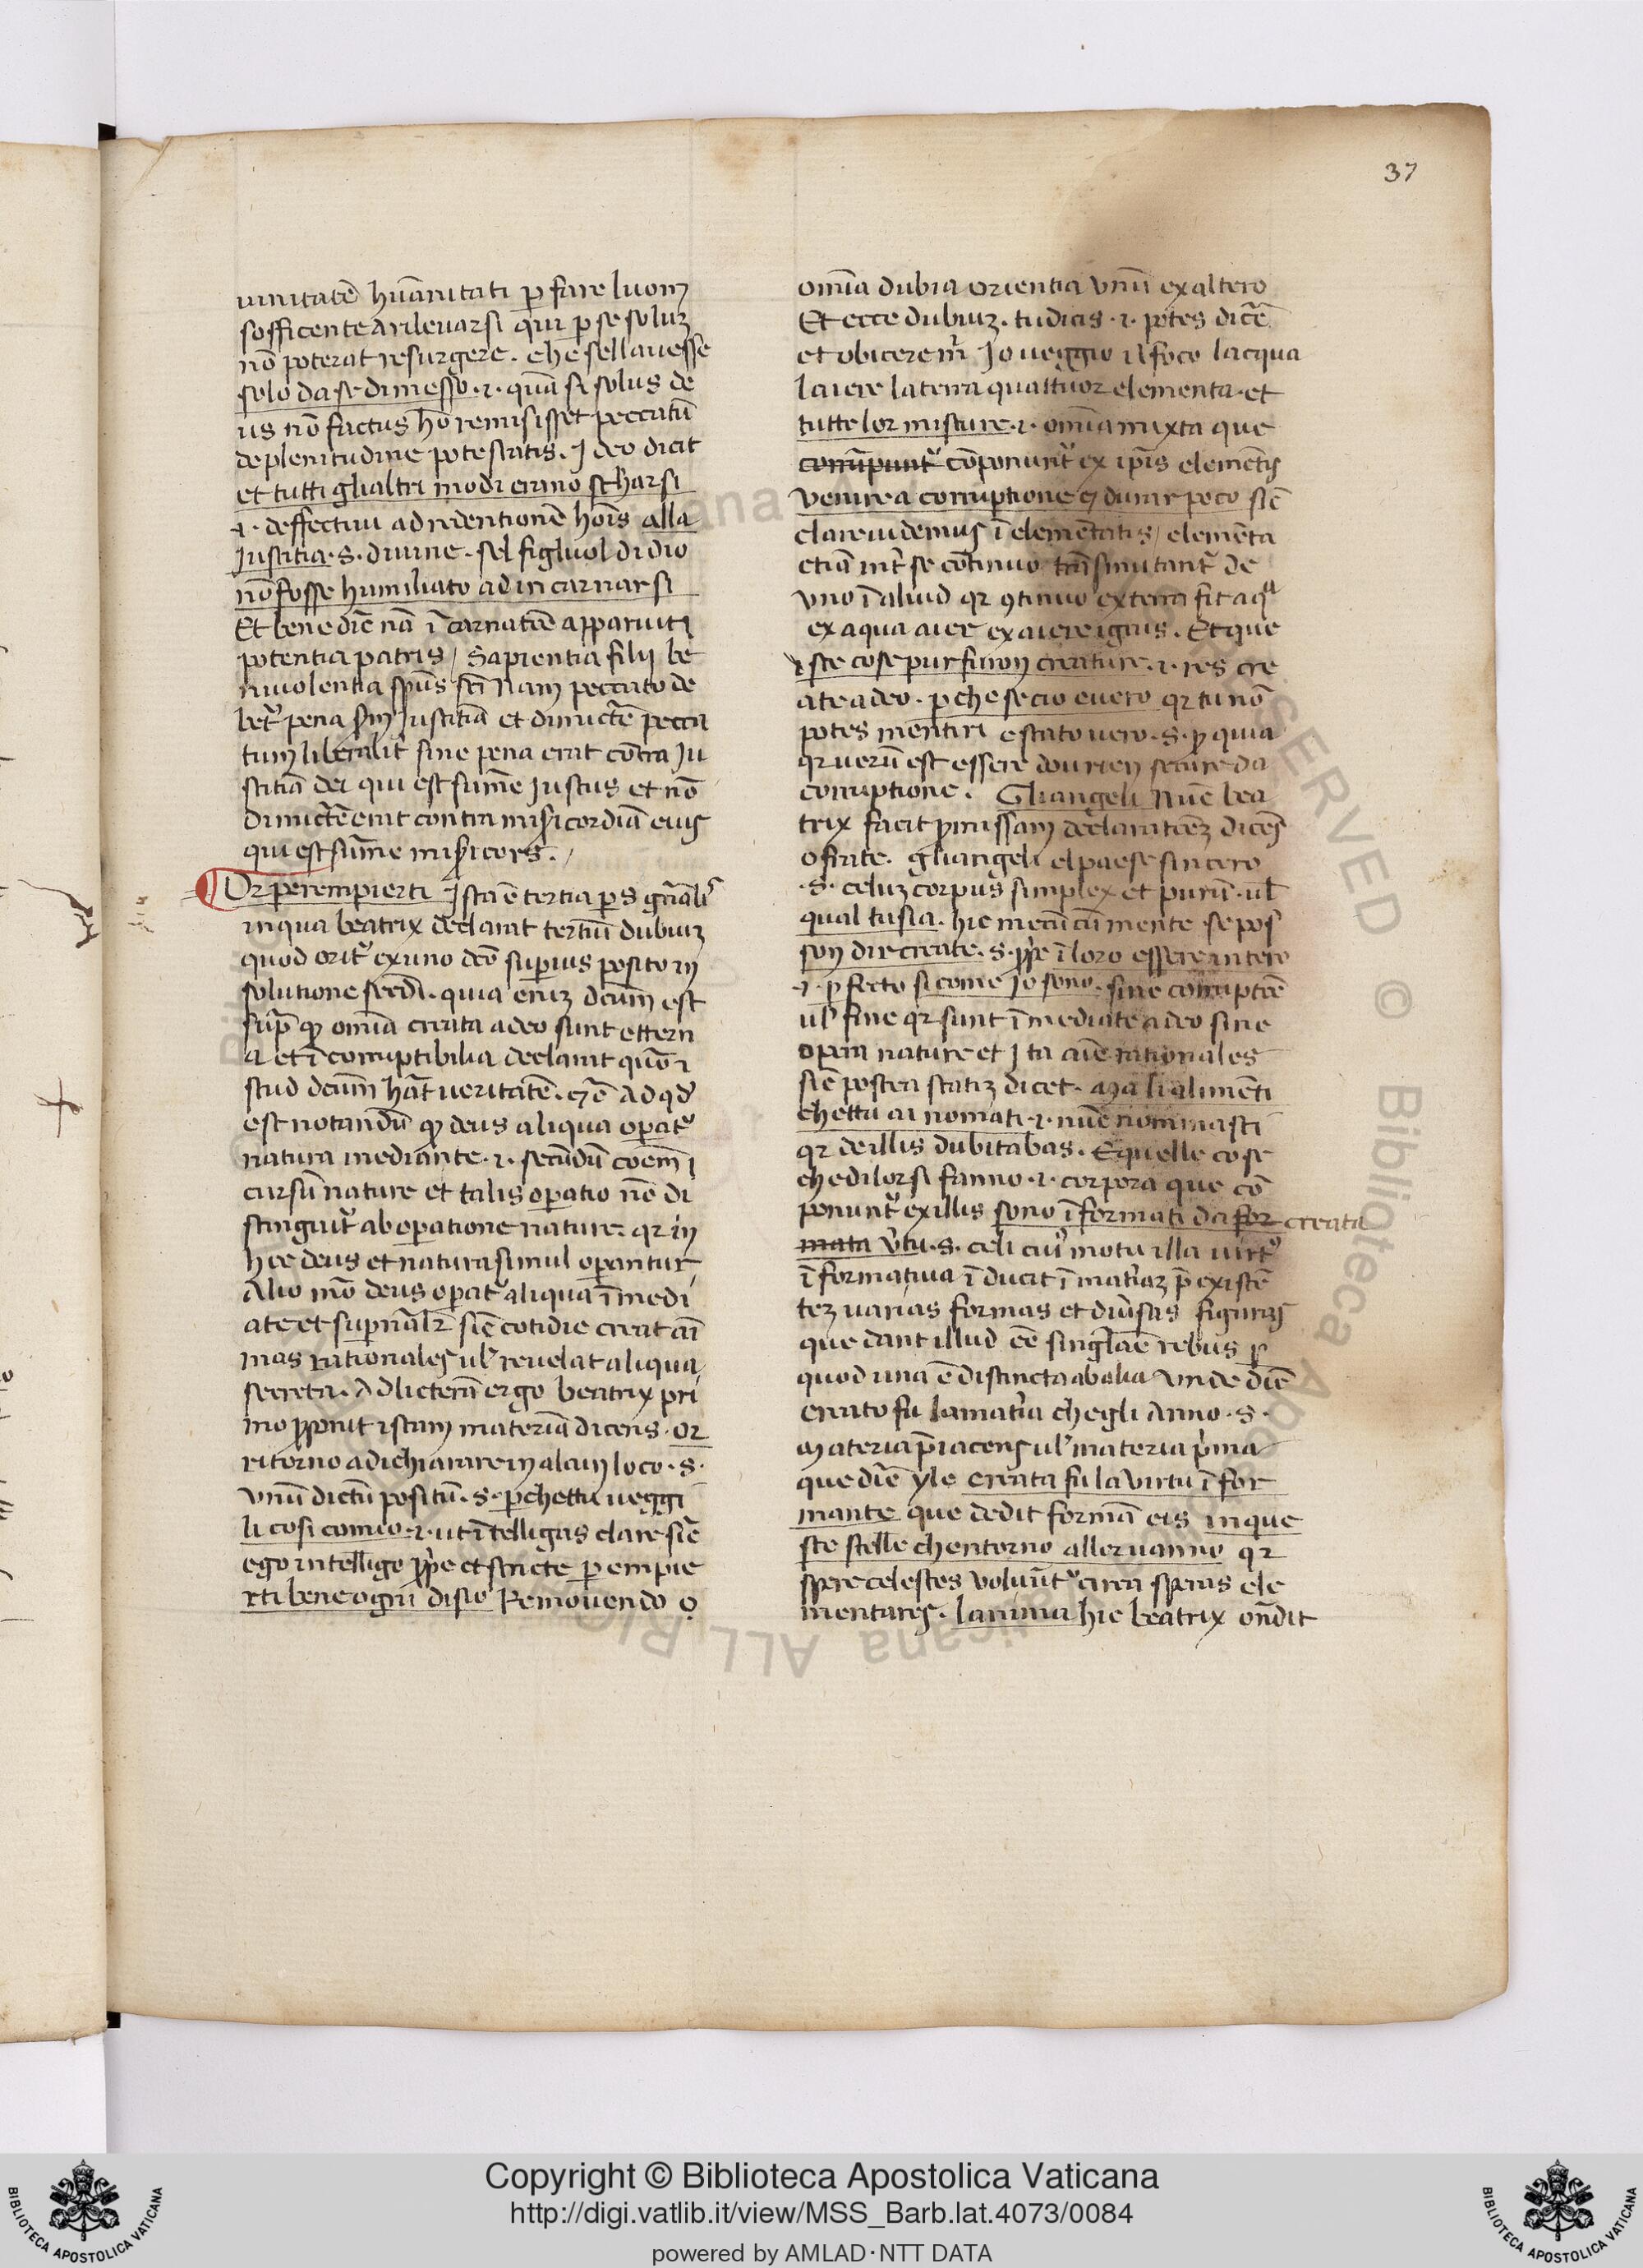 37
uinitatē hūanitati p fare luom
sofficente a rileuarsi qui p se soluz
nō poterat resurgere. e he sell auesse
solo da se dimesso .i. quā si solus de
us nō factus hō remisisset peccatū
de plenitudine potestatis. Ideo dicit
et tutti glialtri modi erano scharsi
.i. deffectiui ad redentionē hoīs alla
Justitia .s. diuine. sel figluol di dio
nō fosse humiliato ad incarnarsi
Et bene dic̄ nā ī carnatiōe apparuit
potentia patris / Sapientia filij be
niuolentia spūs sc̄i Nam peccato de
bet᷑ pena sm̄ Justitiā et dimictē pecca
tum liberalit᷑ sine pena erat cōtra Ju
stitiā dei qui est summe Justus et nō
dimictē erat contra misicordiā eius
qui est sūme misicors. /
Or per empierti Ista ē tertia ps gn̄alis
in qua beatrix declarat tertiū dubiuz
quod orit᷑ ex uno dc̄o superius posito in
solutione secdi. quia enīz dc̄um est
sup̄ qꝫ omīa creata a deo sunt ettern
a et īcorruptibilia declarat quō i
stud dc̄um hāt ueritatē. Ad qd
est notandū qꝫ deus aliqua opat᷑
natura mediante .i. secūdū coēm
cursū nature et talis operatio nō di
stinguit᷑ ab operatione nature. qr in
hec deus et natura simul operantur
Alio mō deus operat᷑ aliqua īmedi
ate et supn̄alr sic̄ cotidie creat aī
mas rationales ul᷑ reuelat aliqua
secreta. Ad licterā ergo beatrix pri
mo pponit istam materiā dicens. or
ritorno a dichiarare in alcun loco .s.
Vnū dictū positū .s. perchettu ueggi
li cosi comio .i. ut ītelligas clare sic̄
ego intelligo ppe et stricte p empie
rti bene ogni disio Remouendo o
omīa dubia orientia vnū ex altero
Et ecce dubiuz. tu dicis .i. potes dicē
et obicere m̄ Jo ueggio il foco lacqua
laiere la terra quattuor elementa. et
tutte lor misture .i. omīa mixta que
corrūpunt᷑ cōponunt᷑ ex ipīs elementis
Venire a corruptione ⁊ durar poco sic̄
clare uidemus ī elemētatis / elemēta
etiā int᷑ se cōtinuo trāsmutant᷑ de
vno ī aliud qr 9tinuo ex terra fit aqᵃ
ex aqua aier ex aiere ignis. Et que
ste cose pur furon creature .i. res cre
ate a deo. p che se cio e uero qr tu nō
potes mentiri e stato uero .s. p quia
qr uerū est essere dourien secure da
corruptione. Gliangeli Nūc bea
trix facit pmissam declaratiōez dicēs
o frate. gliangeli el paese sincero
.s. celuz corpus simplex et purū. ul᷑
qual tu sia. hic mecū cū mente se pos
son dir create .s. ppe ī loro essere intero
.i. pfecto si come Jo sono. sine corruptōe
ul᷑ fine qr sunt īmediate a deo sine
opera nature et Ita aīe rationales
sic̄ postea statiz dicet. Ma li alimēti
chettu ai nomati .i. nūc nominasti
qr de illis dubitabas. E quelle cose
che di lor si fanno .i. corpora que cō
ponunt᷑ ex illis sono īformati da for creata
mata v᷑tu .s. celi cui᷑ motu illa uirt᷑
īformatiua īducit ī mat᷑iaz p̄existē
tez uarias formas et diūsas figuras
que dant illud eē singlāe rebus p
quod una ē distincta ab alia Vnde dic̄
creato fu la mat᷑ia ch egli anno .s.
Materia p̄iacens ul᷑ materia p᷑ma
que dic̄ yle creata fu la virtu īfor
mante que dedit formā eis in que
ste stelle chentorno alle ruanno qr
spere celestes voluūt᷑ circa speras ele
mentares. lanima hic beatrix ondit
Copyright © Biblioteca Apostolica Vaticana
http://digi.vatlib.it/view/MSS_Barb.lat.4073/0084
powered by AMLAD·NTT DATA
BIBLIOTECA APOSTOLICA VATICANA
BIBLIOTECA APOSTOLICA VATICANA